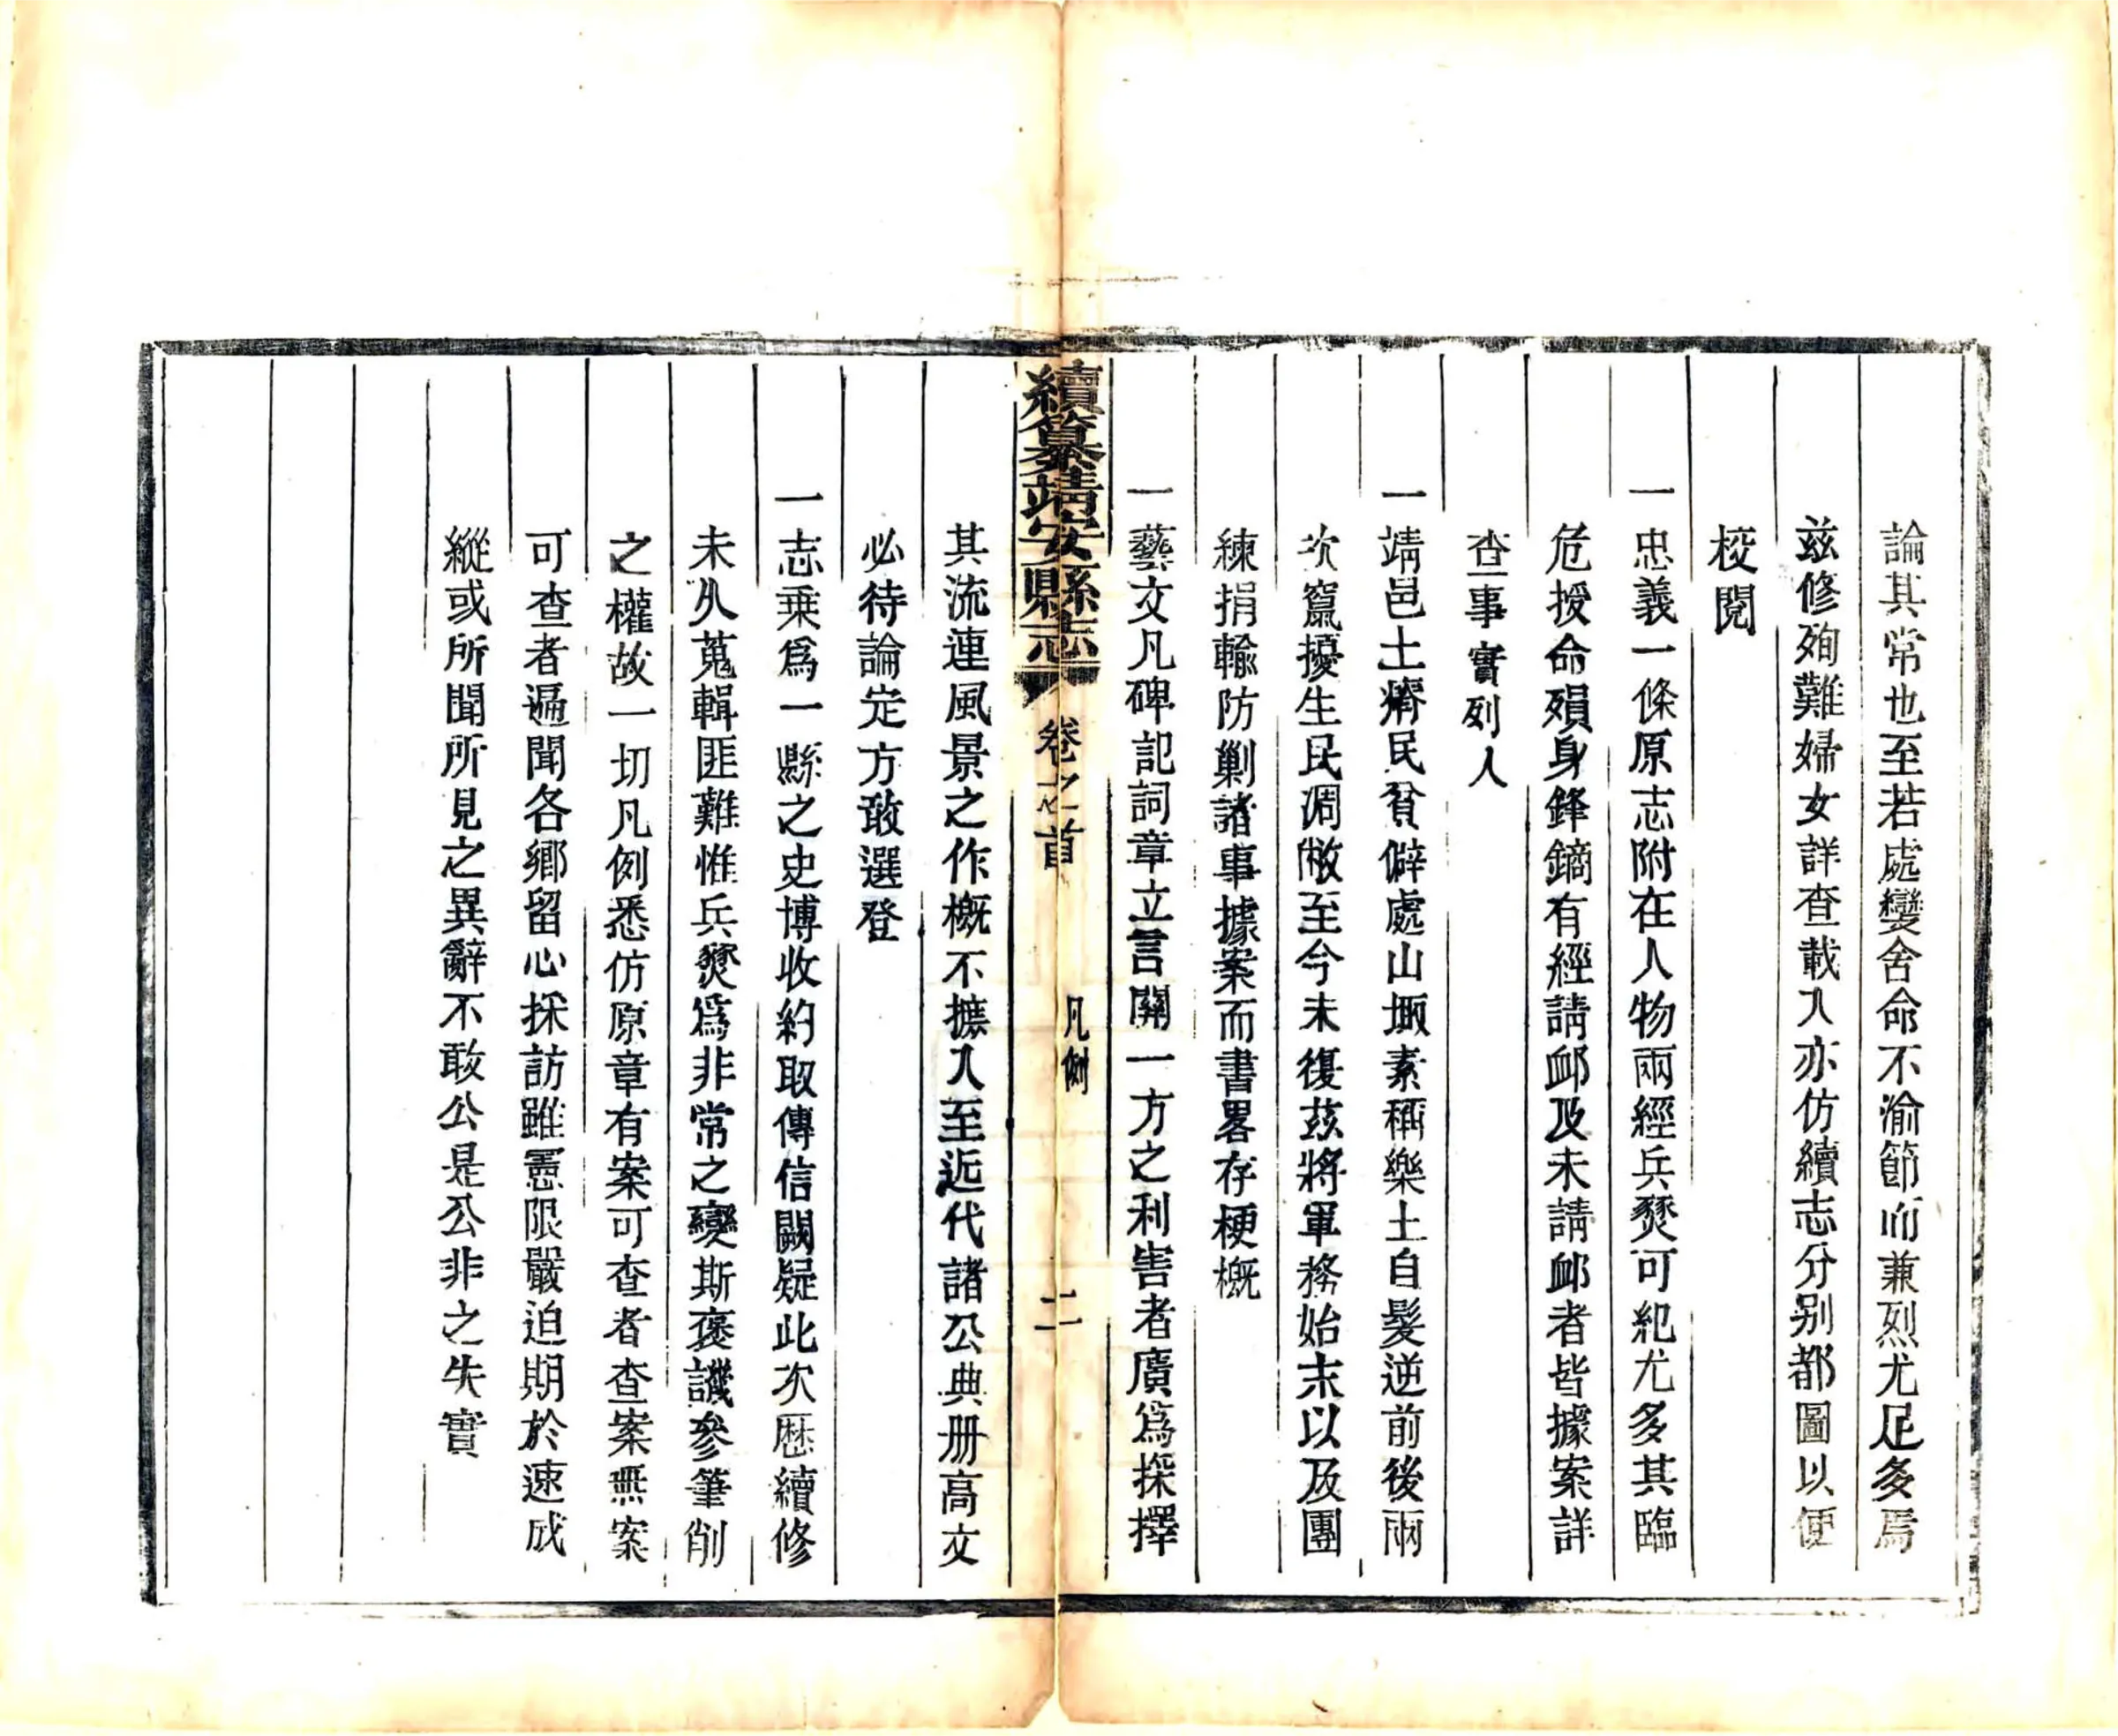 論其常也至若處變舍命不渝節而兼烈尤足多焉
兹修殉難婦女詳查載入亦仿續志分别都圖以便
校閱
一忠義一條原志附在人物兩經兵燹可紀尤多其臨
危授命殞身鋒鏑有經請邺及未請邺者皆據案詳
查事實列入
一靖邑土瘠民貧僻處山陬素稱樂土自髮逆前後兩
次竄擾生民凋敝至今未復茲將軍務始末以及團
練捐輸防剿諸事據案而書畧存梗概
一藝文凡碑記詞章立言關一方之利害者廣爲採擇
續纂靖安縣志 卷之首 凡例 二
其流連風景之作概不摭入至近代諸公典册高文
必待論定方敢選登
一志乘爲一縣之史博收約取傳信闕疑此次歴續修
未久蒐輯匪難惟兵燹爲非常之變斯褒譏參筆削
之權故一切凡例悉仿原章有案可查者查案無案
可查者遍聞各鄉留心採訪雖憲限嚴迫期於速成
縱或所聞所見之異辭不敢公是公非之失實